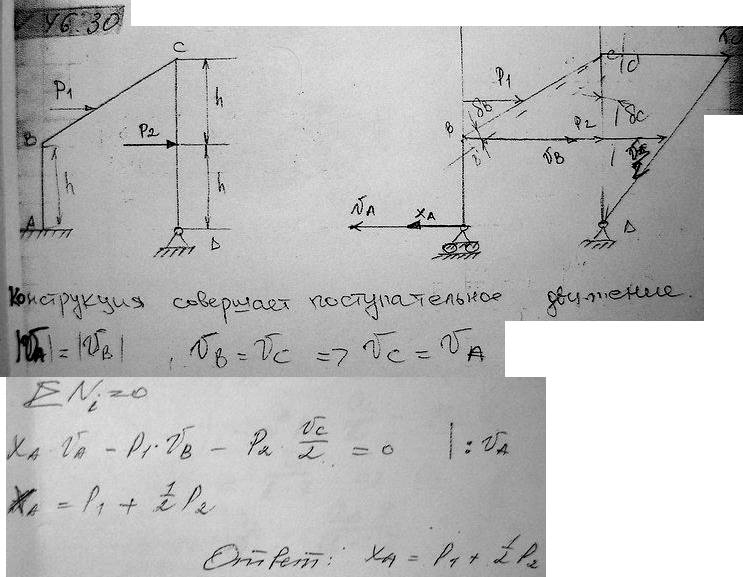 46:30
C
P₁
h
B
P₂
h
h
A
D
P₁
δB
C
C'
δC
B
B'
P₂
V_B
V_A
X_A
D
Конструкция совершает поступательное движение.
|V_A| = |V_B| , V_B = V_C => V_C = V_A
ΣN_i = 0
X_A V_A - P₁·V_B - P₂ V_C/2 = 0 | : V_A
X_A = P₁ + 1/2 P₂
Ответ: X_A = P₁ + 1/2 P₂